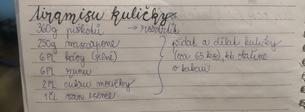 tiramisu kuličky
360g piškotů → rozdrtit
250g mascarpone
6PL kávy (silné)
6PL rumu
2PL cukru moučky
1ČL van. esence
přidat a dělat kuličky
(cca 65 ks), ty obalíme
v kakau